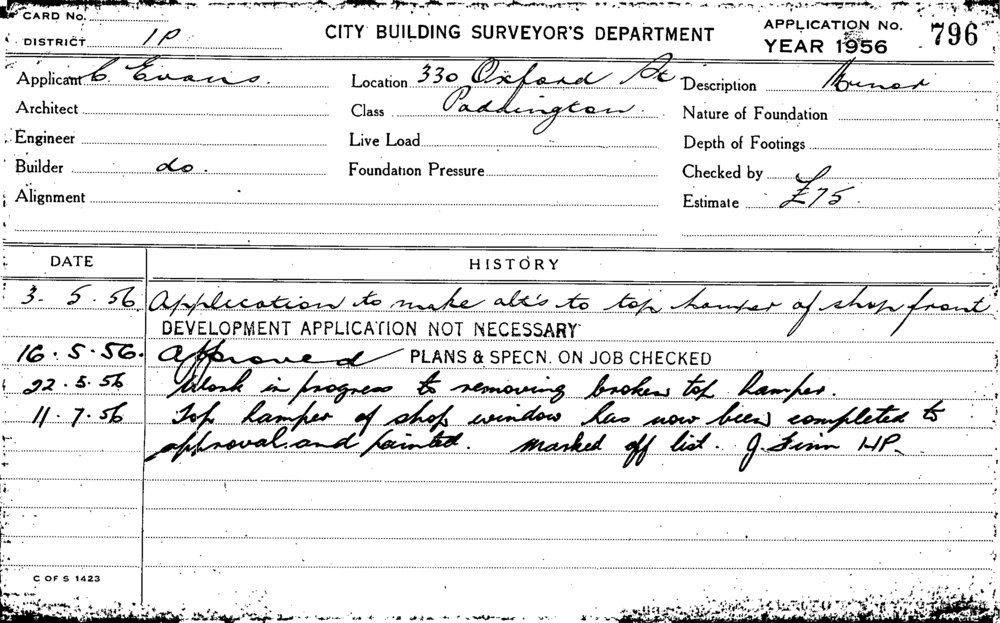 CARD No.
DISTRICT 1P
CITY BUILDING SURVEYOR'S DEPARTMENT
APPLICATION No. 796
YEAR 1956
Applicant C. Evans.
Location 330 Oxford St
Description Minor
Architect
Class Paddington.
Nature of Foundation
Engineer
Live Load
Depth of Footings
Builder do.
Foundation Pressure
Checked by
Alignment
Estimate £75.
DATE HISTORY
3. 5. 56 Application to make alt's to top hamper of shop front
DEVELOPMENT APPLICATION NOT NECESSARY
16. 5. 56. Approved PLANS & SPECN. ON JOB CHECKED
22. 5. 56 Work in progress to removing broken top hamper.
11. 7. 56 Top hamper of shop window has now been completed to
approval and painted. Marked off list. J. Finn
C OF S 1423